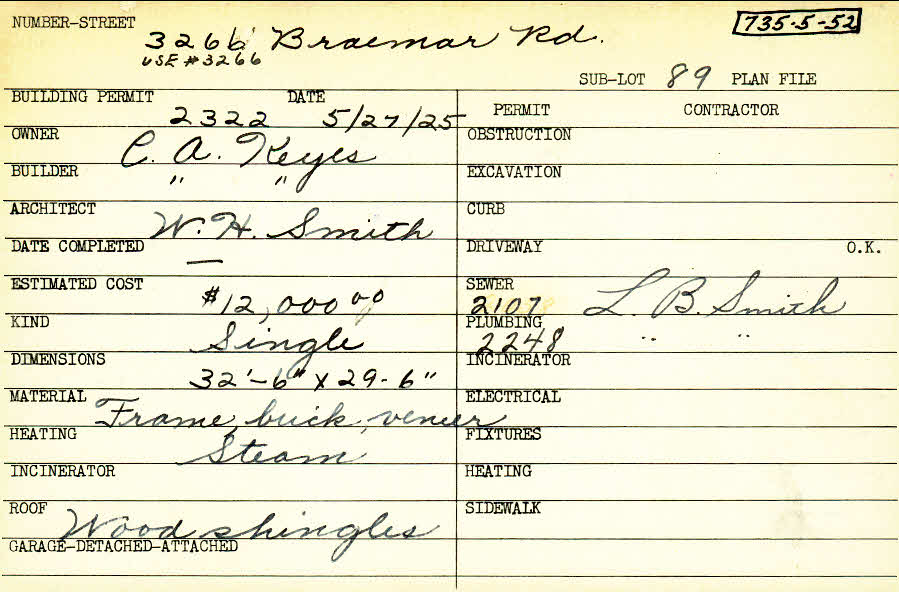 NUMBER-STREET 3266 Braemar Rd. 735-5-52
USE #3266
SUB-LOT 89 PLAN FILE
BUILDING PERMIT 2322 DATE 5/27/25
PERMIT CONTRACTOR
OWNER C. A. Keyes
OBSTRUCTION
BUILDER " "
EXCAVATION
ARCHITECT W. H. Smith
CURB
DATE COMPLETED —
DRIVEWAY O.K.
ESTIMATED COST $12,000.00
SEWER 2107 L. B. Smith
KIND Single
PLUMBING 2248 " "
DIMENSIONS 32'-6" x 29-6"
INCINERATOR
MATERIAL Frame, brick, veneer
ELECTRICAL
HEATING Steam
FIXTURES
INCINERATOR
HEATING
ROOF Wood shingles
SIDEWALK
GARAGE-DETACHED-ATTACHED